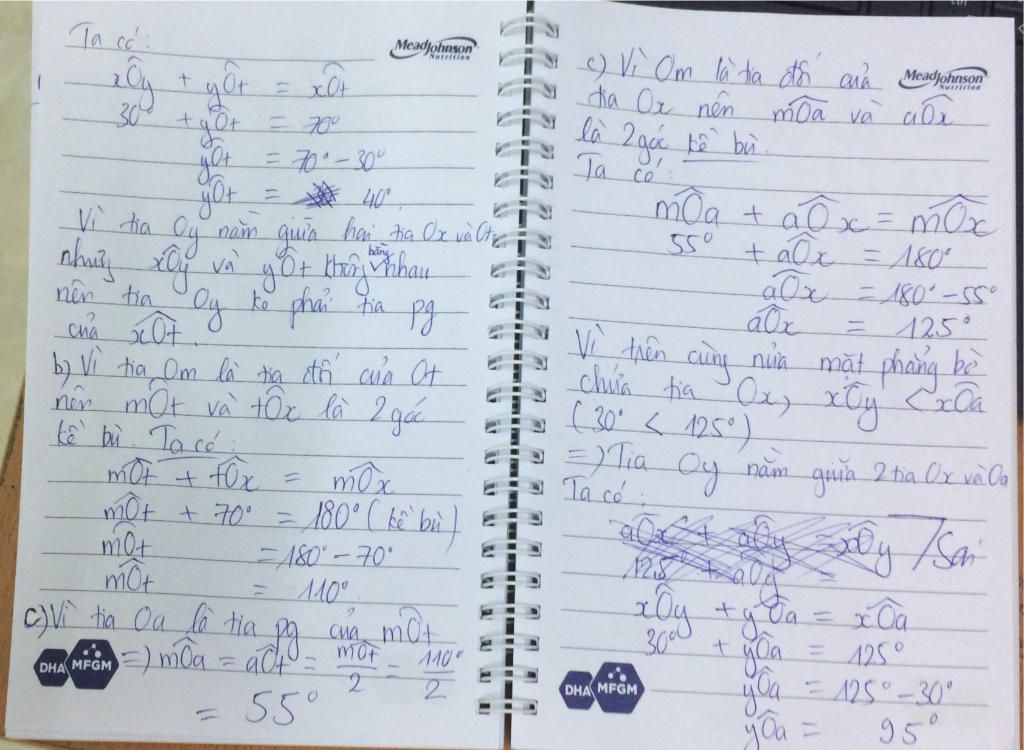 Ta có:
MeadJohnson
Nutrition
xÔy + yÔt = xÔt
30° + yÔt = 70°
yÔt = 70° - 30°
yÔt = 40°
Vì tia Oy nằm giữa hai tia Ox và Ot
nhưng xÔy và yÔt không bằng nhau
nên tia Oy ko phải tia pg
của xÔt.
b) Vì tia Om là tia đối của Ot
nên mÔt và tÔx là 2 góc
kề bù. Ta có:
mÔt + tÔx = mÔx
mÔt + 70° = 180° (kề bù)
mÔt = 180° - 70°
mÔt = 110°
c) Vì tia Oa là tia pg của mÔt
=) mÔa = aÔt = mÔt/2 = 110°/2
= 55°
DHA MFGM
c) Vì Om là tia đối của
MeadJohnson
Nutrition
tia Ox nên mÔa và aÔx
là 2 góc kề bù.
Ta có:
mÔa + aÔx = mÔx
55° + aÔx = 180°
aÔx = 180° - 55°
aÔx = 125°
Vì trên cùng nửa mặt phẳng bờ
chứa tia Ox, xÔy < xÔa
(30° < 125°)
=) Tia Oy nằm giữa 2 tia Ox và Oa
Ta có:
aÔx + aÔy = xÔy / Sai
125° + aÔy =
xÔy + yÔa = xÔa
30° + yÔa = 125°
yÔa = 125° - 30°
yÔa = 95°
DHA MFGM